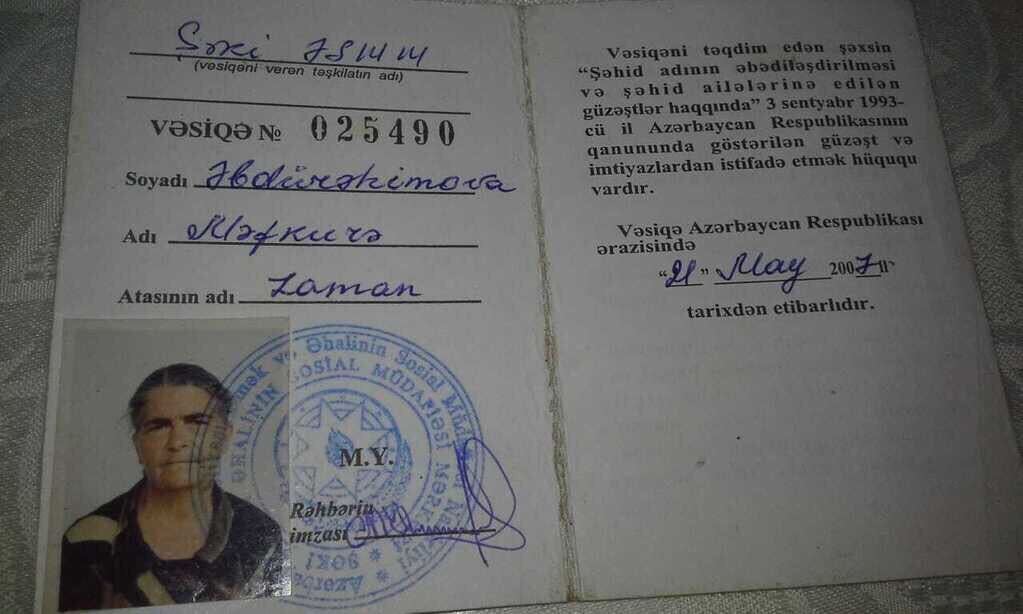 Şəki ƏSMM
(vəsiqəni verən təşkilatın adı)
VƏSİQƏ № 025490
Soyadı Əbdürəhimova
Adı Məfkurə
Atasının adı Zaman
Əhalinin Sosial
ƏHALİNİN SOSİAL MÜDAFİƏSİ MƏRK
ŞƏKİ
M.Y.
Rəhbərin
imzası
Vəsiqəni təqdim edən şəxsin
“Şəhid adının əbədiləşdirilməsi
və şəhid ailələrinə edilən
güzəştlər haqqında” 3 sentyabr 1993-
cü il Azərbaycan Respublikasının
qanununda göstərilən güzəşt və
imtiyazlardan istifadə etmək hüququ
vardır.
Vəsiqə Azərbaycan Respublikası
ərazisində
“21” May 2007 il
tarixdən etibarlıdır.